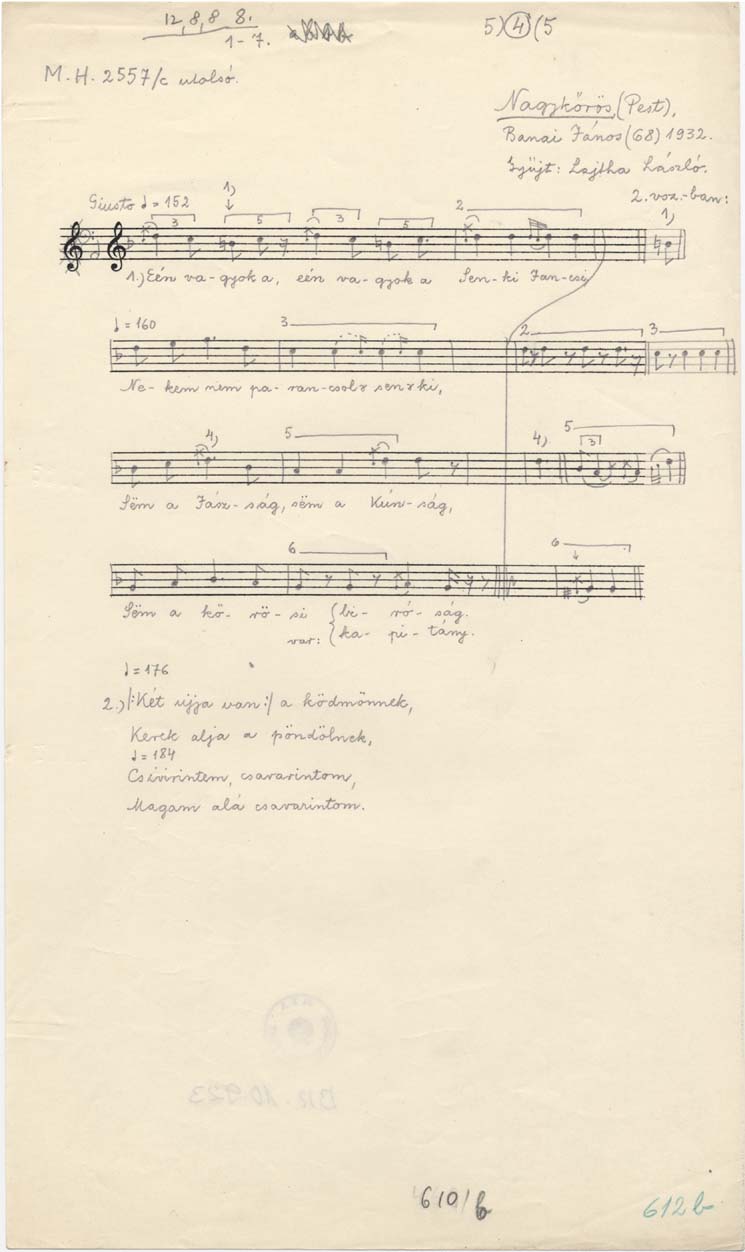 12, 8, 8 8.
1-7.
5) 4 (5
M.H. 2557/c utolsó.
Nagykőrös, (Pest),
Banai János (68) 1932.
Gyűjt: Lajtha László.
Giusto ♩= 152
1)
2. vsz.-ban:
3 5 3 5 2 1)
1.) Eén va-gyok a, eén va-gyok a Sen-ki Jan-csi,
♩= 160
3 2 3
Ne-kem nem pa-ran-csol senki,
4) 5 4) 5 3
Sëm a Jász-ság, sëm a Kún-ság,
6 6
Sëm a kö-rö-si bi-ró-ság.
var: ka-pi-tány.
♩= 176
2.) /:Két ujja van:/ a ködmönnek,
Kerek alja a pöndölnek,
♩= 184
Csivirintem, csavarintom,
Magam alá csavarintom.
BR. 10923
610/b
612b